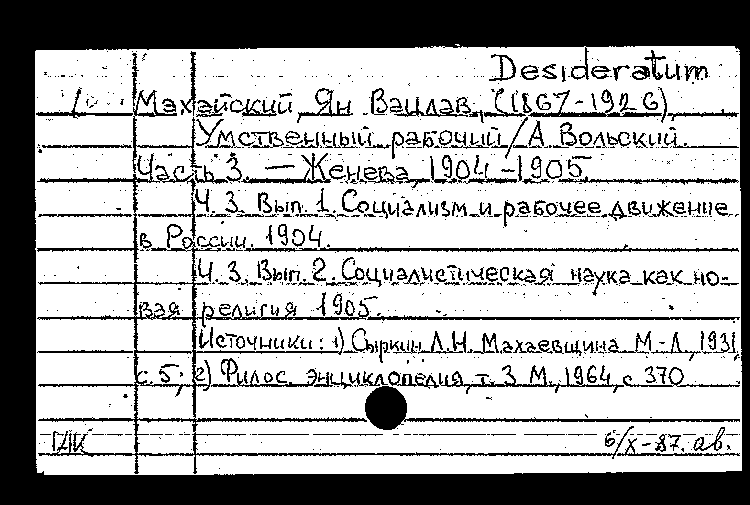 Desideratum
Махайский, Ян Вацлав, (1867-1926),
Умственный рабочий / А Вольский.
Часть 3. — Женева, 1904-1905.
Ч. 3. Вып. 1. Социализм и рабочее движение
в России. 1904.
Ч. 3. Вып. 2. Социалистическая наука как но-
вая религия 1905.
Источники: 1) Сыркин Л.Н. Махаевщина М.-Л., 1931,
с. 5; 2) Филос. энциклопедия, т. 3 М., 1964, с 370
6/X-87. ав.